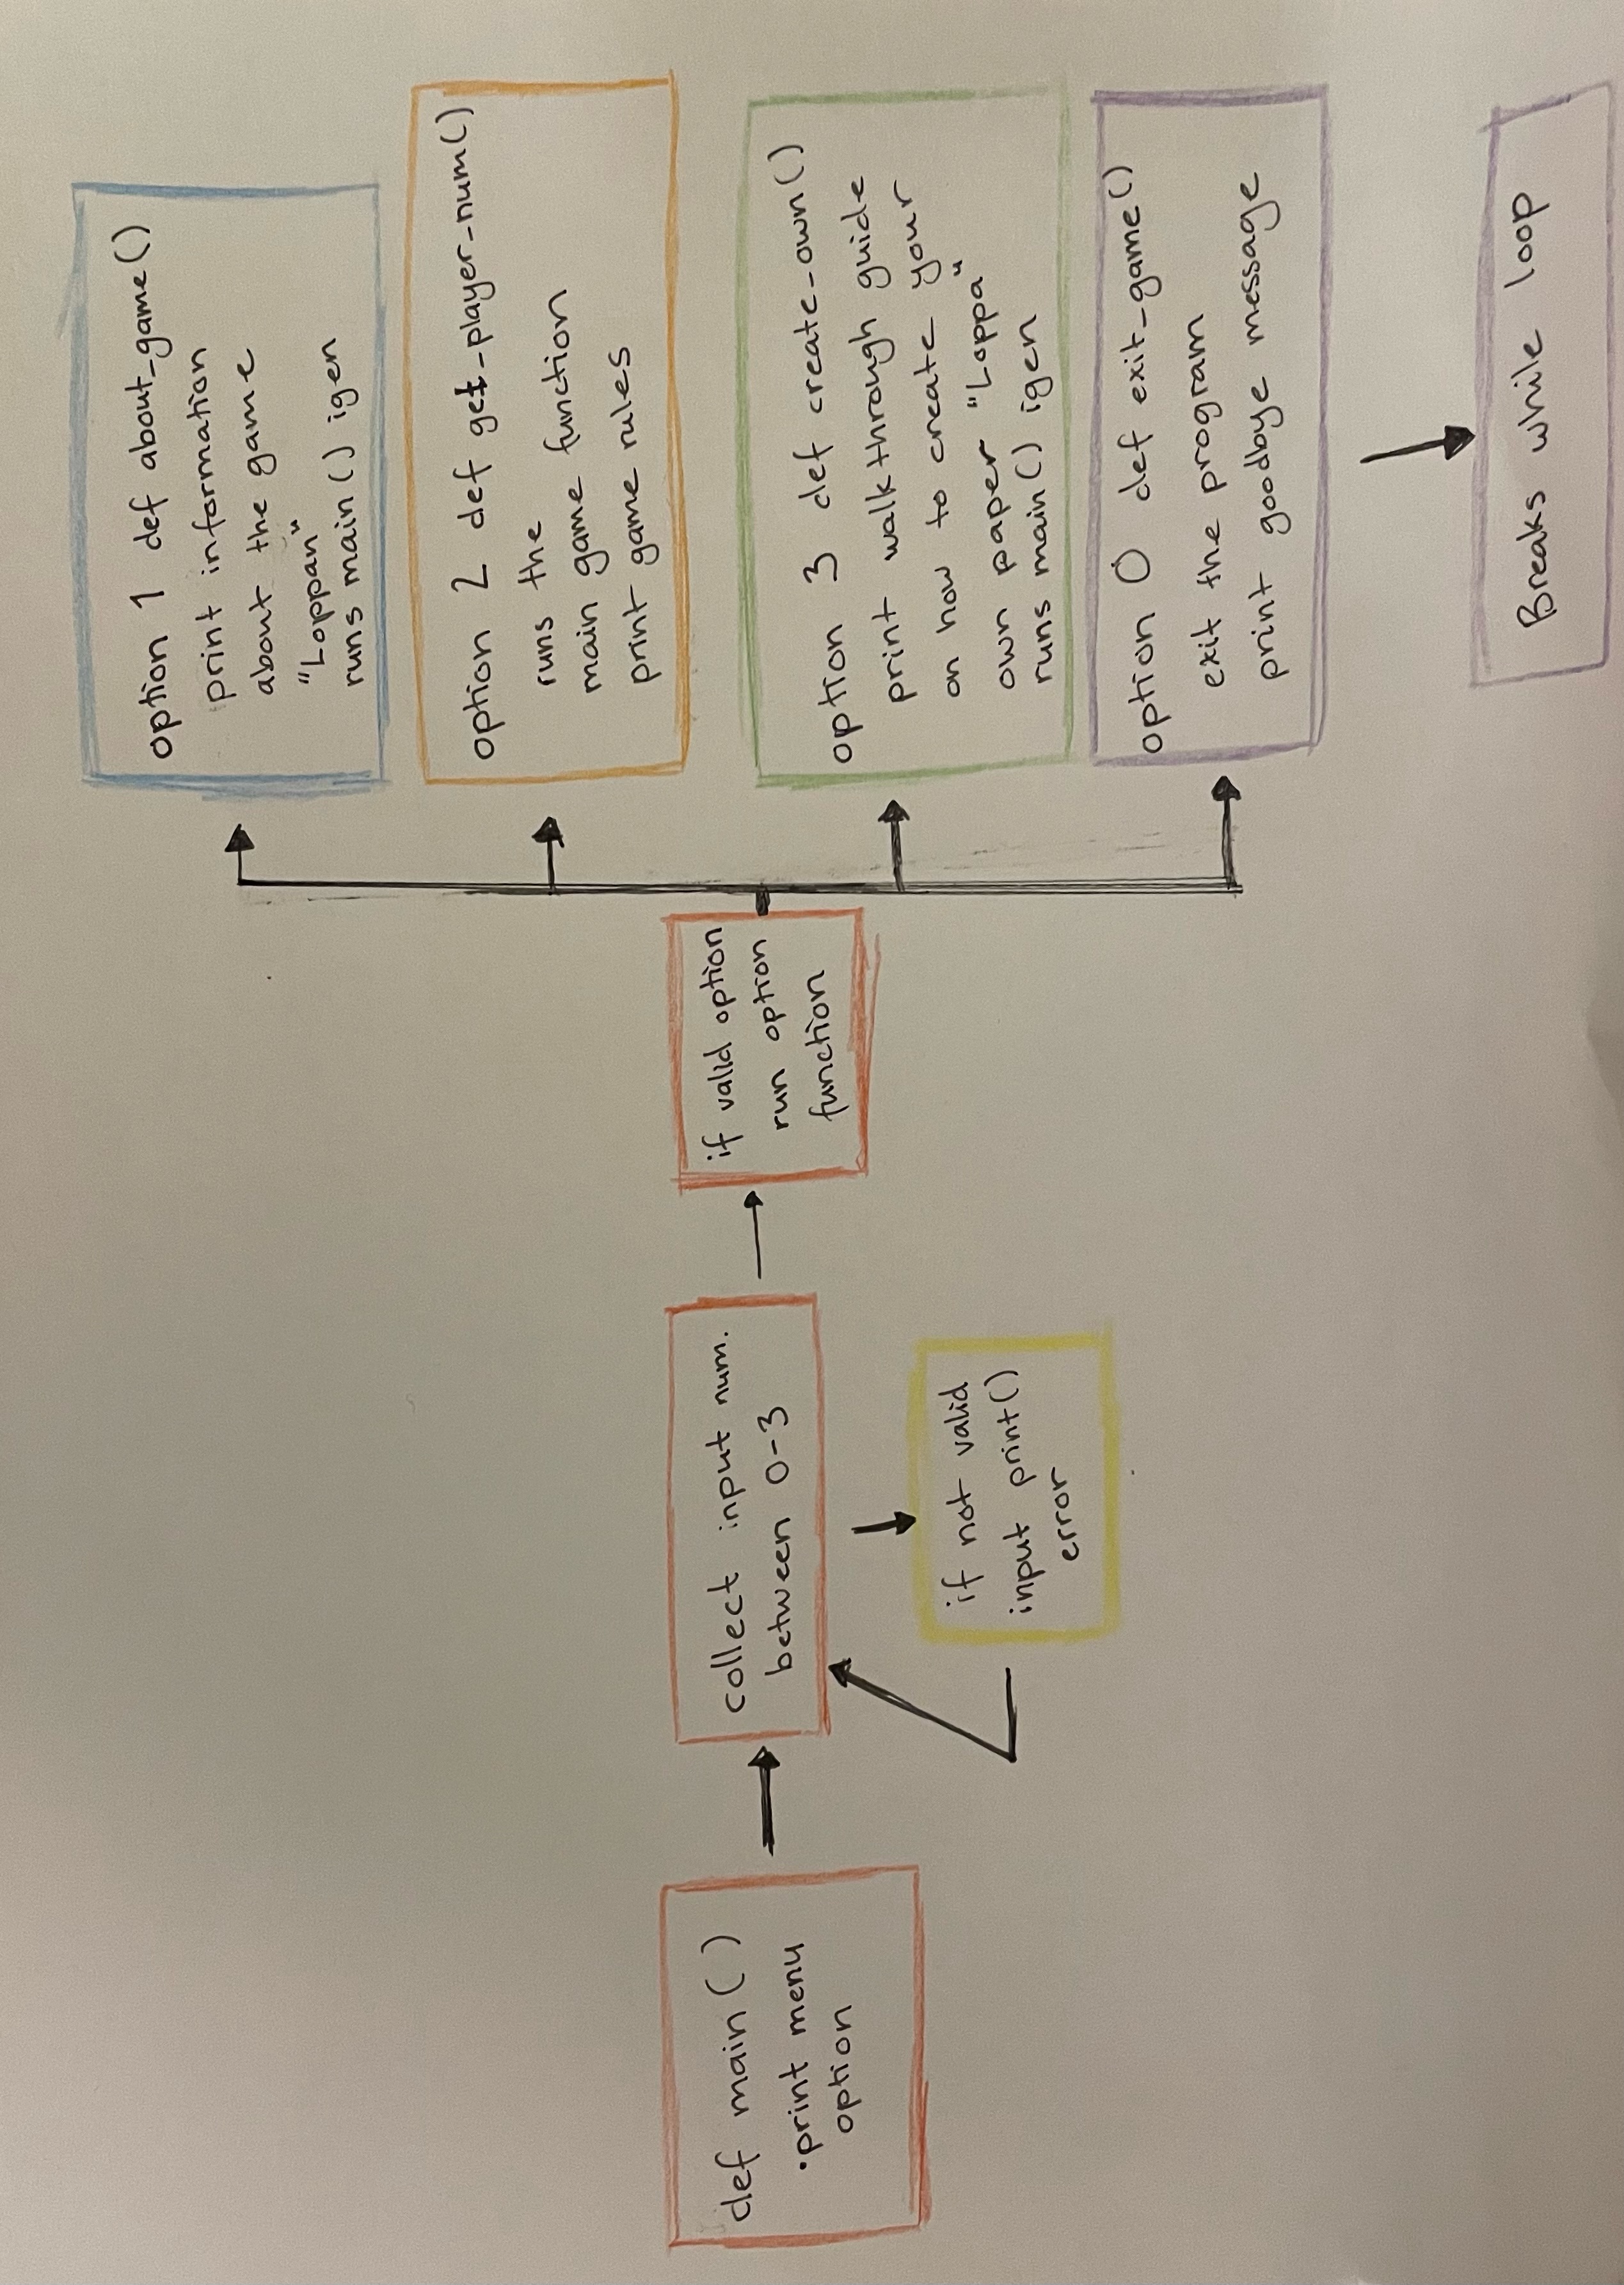 def main ( )
•print menu
option
collect input num.
between 0-3
if not valid
input print()
error
if valid option
run option
function
option 1 def about_game()
print information
about the game
"Loppan"
runs main () igen
option 2 def get_player_num()
runs the
main game function
print game rules
option 3 def create_own()
print walkthrough guide
on how to create your
own paper "Loppa"
runs main() igen
option 0 def exit_game()
exit the program
print goodbye message
Breaks while loop